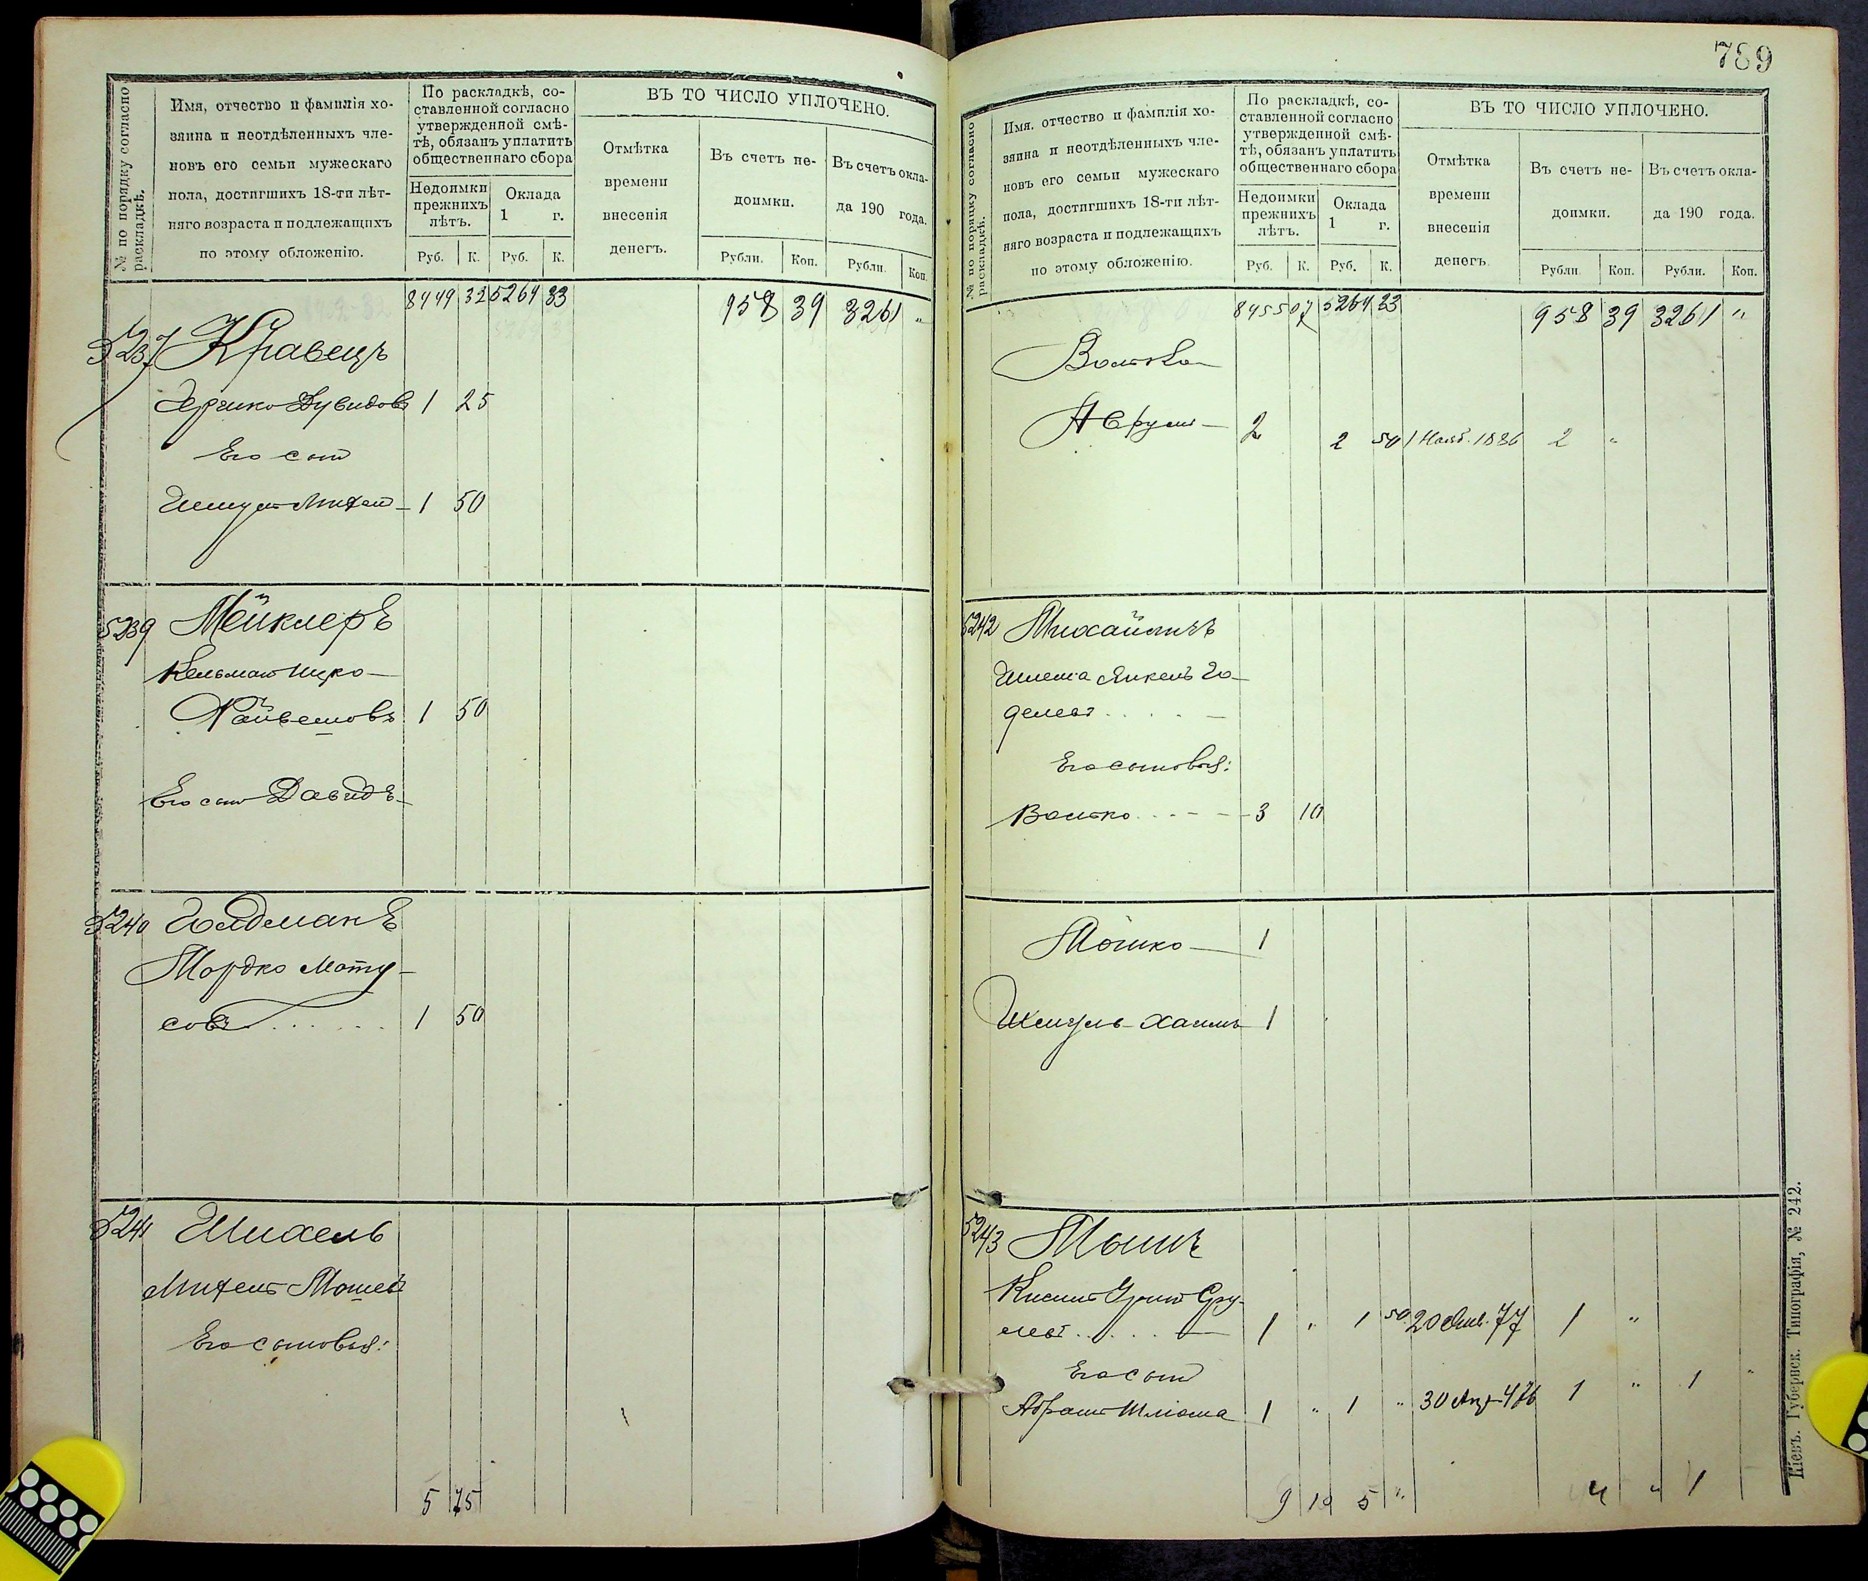 789
№ по порядку согласно раскладкѣ.
Имя, отчество и фамилія хо-
зяина и неотдѣленныхъ чле-
новъ его семьи мужескаго
пола, достигшихъ 18-ти лѣт-
няго возраста и подлежащихъ
по этому обложенію.
По раскладкѣ, со-
ставленной согласно
утвержденной смѣ-
тѣ, обязанъ уплатить
общественнаго сбора
Недоимки
прежнихъ
лѣтъ.
Оклада
1 г.
Руб. К. Руб. К.
ВЪ ТО ЧИСЛО УПЛОЧЕНО.
Отмѣтка
времени
внесенія
денегъ.
Въ счетъ не-
доимки.
Въ счетъ окла-
да 190 года.
Рубли. Коп. Рубли. Коп.
8449 32 5264 33 958 39 3261 "
5237 Кравецъ
Гершко Дувидовъ 1 25
Его сын
Шмул Михел 1 50
5239 Мейклеръ
Кельман Ицко
Файвешовъ 1 50
Его сын Давидъ
5240 Гольдманъ
Мордко Мату-
совъ . . . . . . 1 50
5241 Шихель
Михель Мошев
Его сыновья:
5 75
№ по порядку согласно раскладкѣ.
Имя, отчество и фамилія хо-
зяина и неотдѣленныхъ чле-
новъ его семьи мужескаго
пола, достигшихъ 18-ти лѣт-
няго возраста и подлежащихъ
по этому обложенію.
По раскладкѣ, со-
ставленной согласно
утвержденной смѣ-
тѣ, обязанъ уплатить
общественнаго сбора
Недоимки
прежнихъ
лѣтъ.
Оклада
1 г.
Руб. К. Руб. К.
ВЪ ТО ЧИСЛО УПЛОЧЕНО.
Отмѣтка
времени
внесенія
денегъ.
Въ счетъ не-
доимки.
Въ счетъ окла-
да 190 года.
Рубли. Коп. Рубли. Коп.
8455 07 5264 33 958 39 3261 "
Волько
Аврум 2 2 50 1 Нояб. 1886 2 "
5242 Михайличъ
Шлема Янкель Го-
делев . . . .
Его сыновья:
Волько . . . 3 10
Мошко 1
Шмуль-Хаимъ 1
5243
1 " 1 50 20 77 1 "
Его сын
Абрам Шліома 1 " 1 " 30 Апр 1 " 1 "
9 10 5 " 4 " 1
Кіевъ. Губернск. Типографія, № 242.